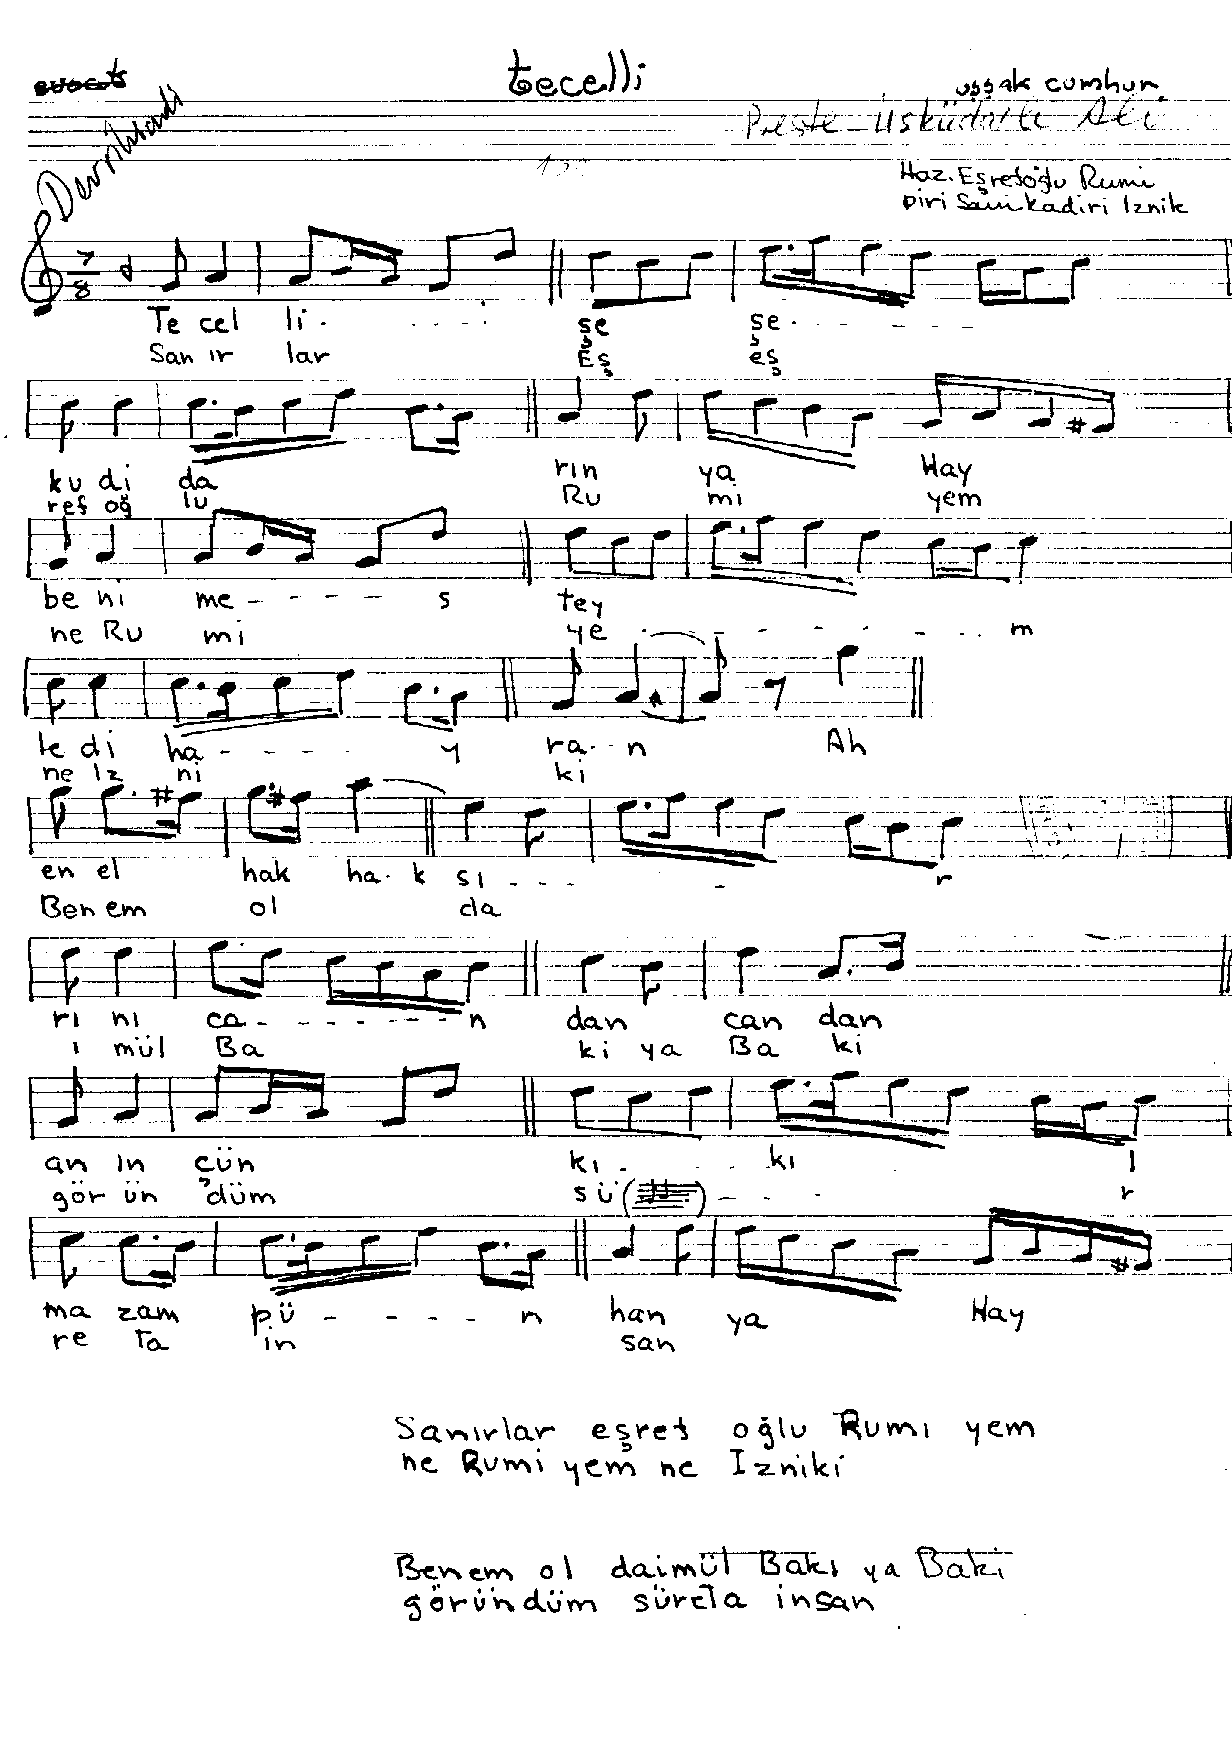 tecelli
uşşak cumhur
Beste Üsküdarlı Ali
Devrihindi
Haz. Eşrefoğlu Rumi
piri Sani kadiri Iznik
7
8
Te cel li . - - - - şe şe . - - - - -
San ır lar Eş eş
ku di da rın ya Hay
ref oğ lu Ru mi yem
be ni me - - - - s tey
ne Ru mi ye . - - - - - . . m
le di ha - - - - y ra . - n Ah
ne Iz ni ki
en el hak ha . k sı . - - - - r
Ben em ol da
rı nı ca - - - - - n dan can dan
i mül Ba ki ya Ba ki
an ın çün kı . - . - kı ı
gör ün düm sü - - - r
ma zam pü - - - - n han ya Hay
re ta in san
Sanırlar eşref oğlu Rumı yem
ne Rumi yem ne Izniki
Benem ol daimül Bakı ya Baki
göründüm süreta insan